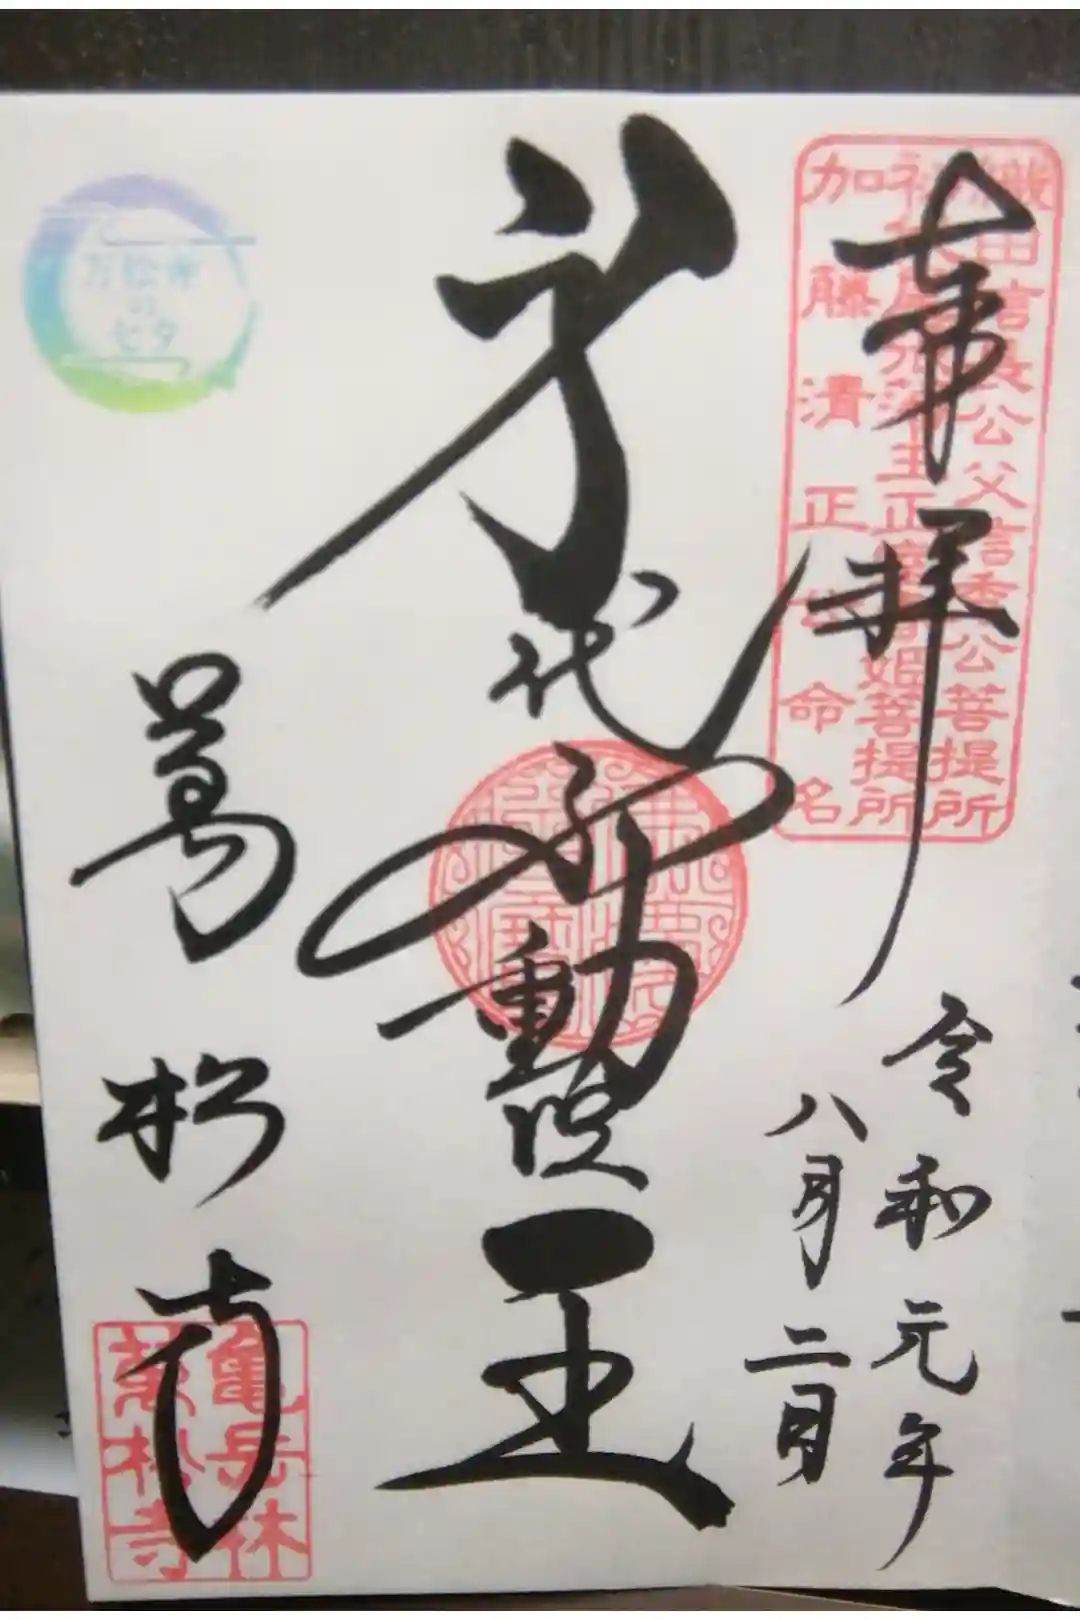 奉拝
織田信長公父信秀公菩提所
正室春姫菩提所
加藤清正公命名
令和元年
八月二日
身代不動明王
萬松寺
亀岳林
萬松寺
万松寺
の
七夕